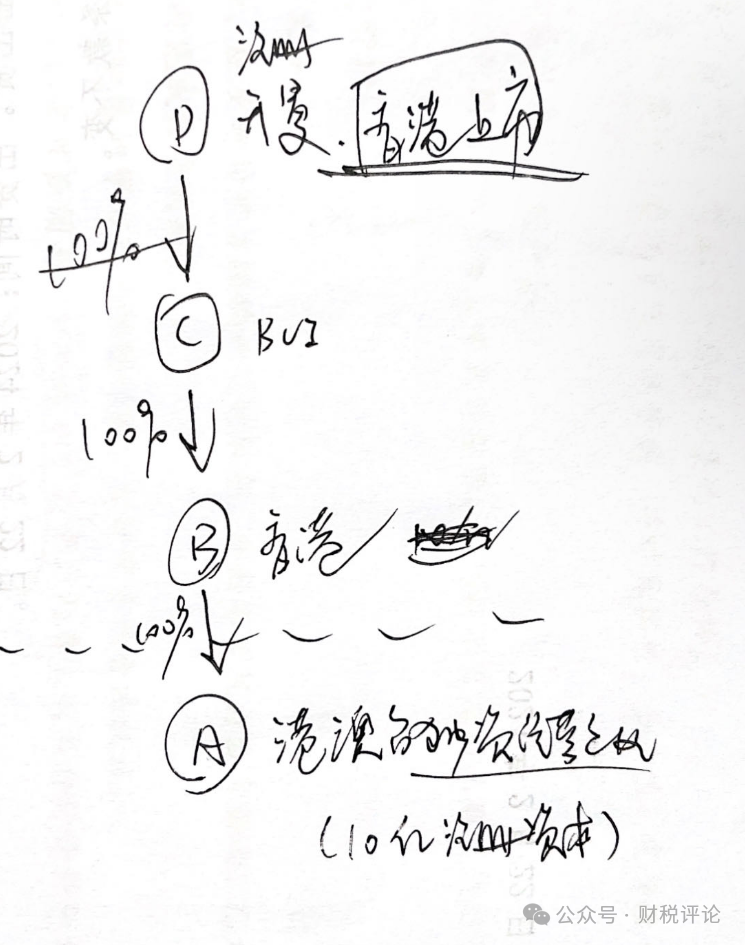 注册
D 开曼. 香港上市
100%
C BVI
100%
B 香港
100%
A 港澳台独资经营
(10亿注册资本)
公众号·财税评论